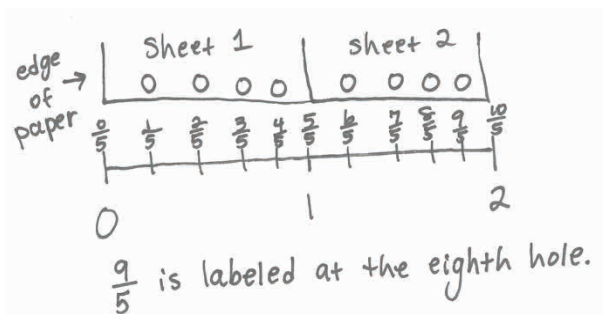 Sheet 1 sheet 2
edge
of
paper
0/5 1/5 2/5 3/5 4/5 5/5 6/5 7/5 8/5 9/5 10/5
0 1 2
9/5 is labeled at the eighth hole.